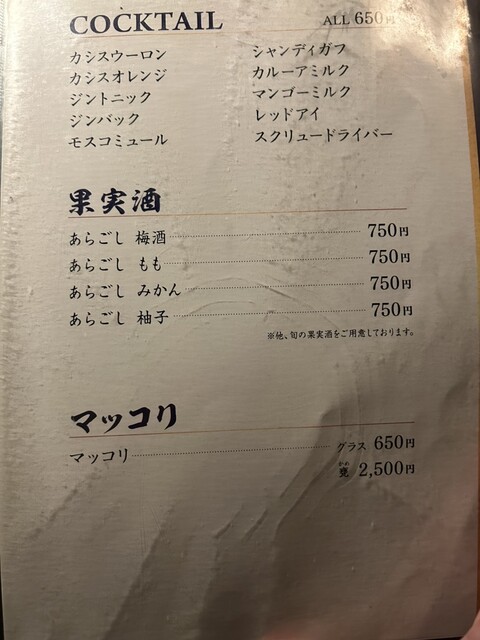 COCKTAIL ALL 650円
カシスウーロン シャンディガフ
カシスオレンジ カルーアミルク
ジントニック マンゴーミルク
ジンバック レッドアイ
モスコミュール スクリュードライバー
果実酒
あらごし 梅酒 750円
あらごし もも 750円
あらごし みかん 750円
あらごし 柚子 750円
※他、旬の果実酒をご用意しております。
マッコリ
マッコリ グラス 650円
かめ
甕 2,500円